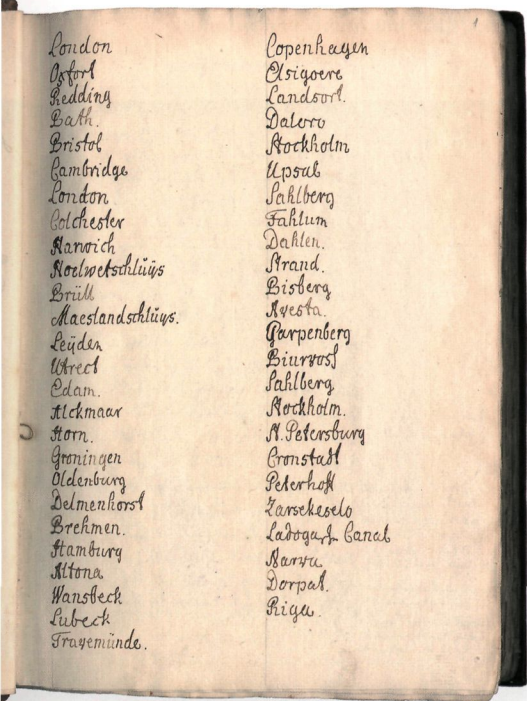 London
Oxfort
Redding
Bath.
Bristol
Cambridge
London
Colchester
Harwich
Hoelwetschlüÿs
Brüll
Maeslandschlüÿs.
Leÿden
Utrect
Edam.
Alckmaar
Horn.
Groningen
Oldenburg
Delmenhorst
Brehmen.
Hamburg
Altona
Wansbeck
Lubeck
Travemünde.
Copenhagen
Elsigoere
Landsort.
Dalero
Stockholm
Upsal
Sahlberg
Fahlum
Dahlen.
Strand.
Bisberg
Avesta.
Garpenberg
Sahlberg
Stockholm.
St. Petersburg
Cronstadt
Peterhoff
Zarsekeselo
Canal
Narva
Dorpat.
Riga.